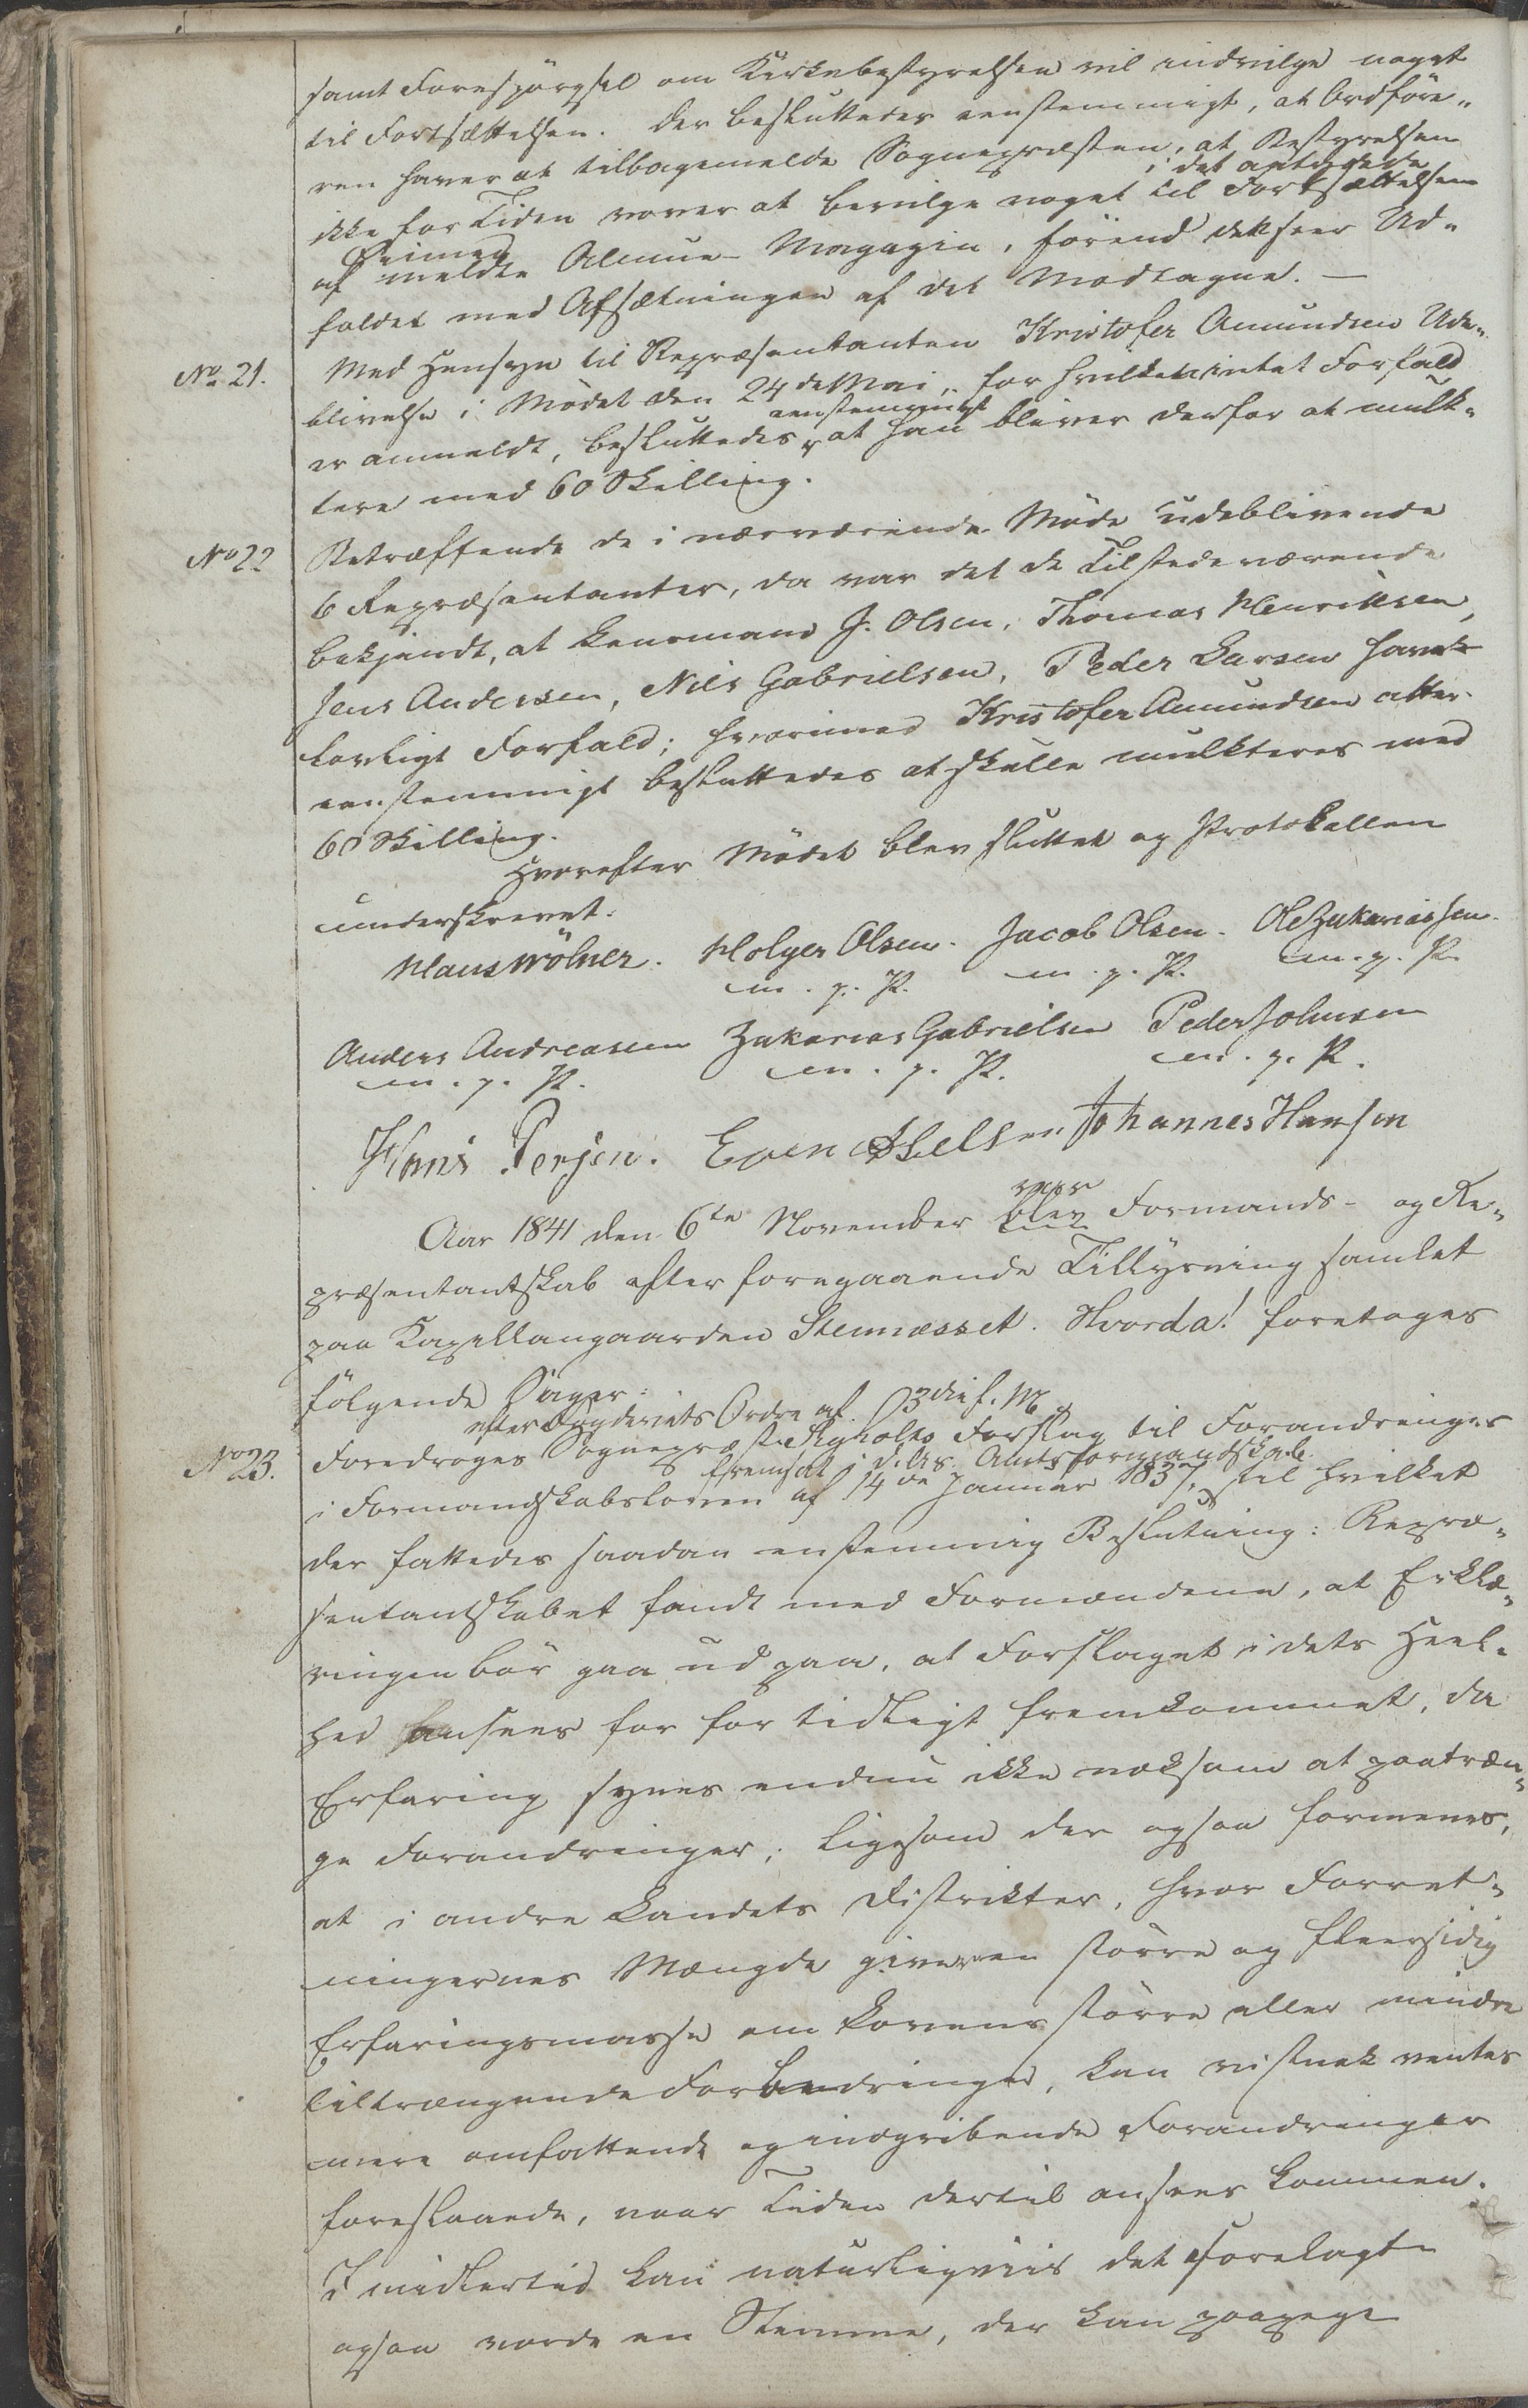 samt Forespörgsel om Kirkebestyrelsen vil indvilge noget
til Fortsættelsen. Der besluttedes eenstemmigt, at Ordföre„
ren haver at tilbagemelde Sognepræsten, at Bestyrelsen
i det antydede
ikke for Tiden vover at bevilge noget til Fortsættelsen
af meldte Almue-Magazin, förend dette seer Ud„
faldet med Afsætningen af det Modtagne. —
No. 21. Med Hensyn til Repræsentanten Kristofer Amundsen Ude„
blivelse i Mödet den 24de Mai, for hvilken intet Forfald
eenstemmigt
er anmeldt, besluttedes, at han bliver derfor at mulk„
tere med 60 Skilling.
No 22 Betræffende de i nærværende Möde udeblivende
6 Repræsentanter, da var det de Tilstedeværende
bekjendt, at Lensmand J. Olsen, Thomas Henriksen,
Jens Andersen, Nils Gabrielsen, Peder Larsen havde
lovligt Forfald; hvorimod Kristofer Amundsen atter
eenstemmigt besluttedes at skulle mulkteres med
60 Skilling.
Hvorefter Mödet blev sluttet og Protokollen
underskrevet.
Hans Wölner. Holger Olsen. Jacob Olsen. Ole Zakariassen.
m. p. P. m. p. P. m. p. P.
Anders Andreassen Zakarias Gabrielsen Peder Johnsen
m. p. P. m. p. P. m. p. P.
Hans Persen. Even Johannes Hansen
var
Aar 1841 den 6te November blev Formands- og Re„
præsentantskab efter foregaaende Tillysning samlet
paa Kapellangaarden Stennesset. Hvorda! foretoges
fölgende Sager:
efter Fogderiets Ordre af 3die f. M.
No 23. Foredroges Sognepræst Forslag til Forandringer
fremsat i Amtsformandskab
i Formandskabsloven af 14de Januar 1837, til hvilket
der fattedes saadan enstemmig Beslutning: Repræ„
sentantskabet fandt med Formændene, at Erklæ„
ringen bör gaa ud paa, at Forslaget i dets Heel„
hed ansees for for tidligt fremkommet, da
Erfaring synes endnu ikke noksom at paatræn„
ge Forandringer; ligesom der ogsaa formenes,
at i andre Landets Distrikter, hvor Forret„
ningernes Mængde giver en större og fleersidig
Erfaringsmasse om Lovens större eller mindre
tiltrængende Forandringer, kan vistnok ventes
mere omfattende og indgribende Forandringer
foreslaaede, naar Tiden dertil ansees kommen.
Imidlertid kan naturligviis det Forelagte
ogsaa vorde en Stemme, der kan paapege